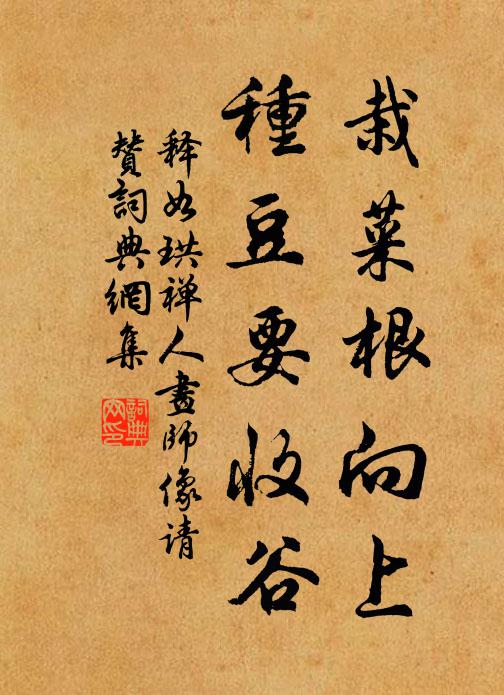 栽菜根向上
種豆要收谷
释如珙禅人畫师像请
贊詞典網集
詞典
网印